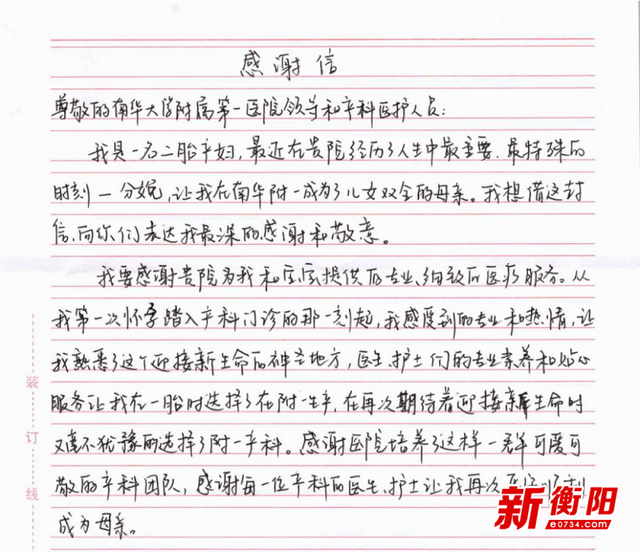 感谢信
尊敬的南华大学附属第一医院领导和产科医护人员:
我是一名二胎产妇,最近在贵院经历了人生中最主要、最特殊的
时刻一分娩,让我在南华附一成为了儿女双全的母亲。我想借这封
信,向你们表达我最深的感谢和敬意。
我要感谢贵院为我和宝宝提供的专业、细致的医疗服务。从
我第一次怀孕踏入产科门诊的那一刻起,我感受到的专业和热情,让
我熟悉了这个迎接新生命的神圣地方,医生、护士们的专业素养和贴心
服务让我在一胎时选择了在附一生产,在再次期待着迎接新生命时
又毫不犹豫的选择了附一产科。感谢医院培养了这样一群可爱可
敬的产科团队,感谢每一位产科的医生、护士让我再次
成为母亲。
装
订
线
新衡阳
e0734.com